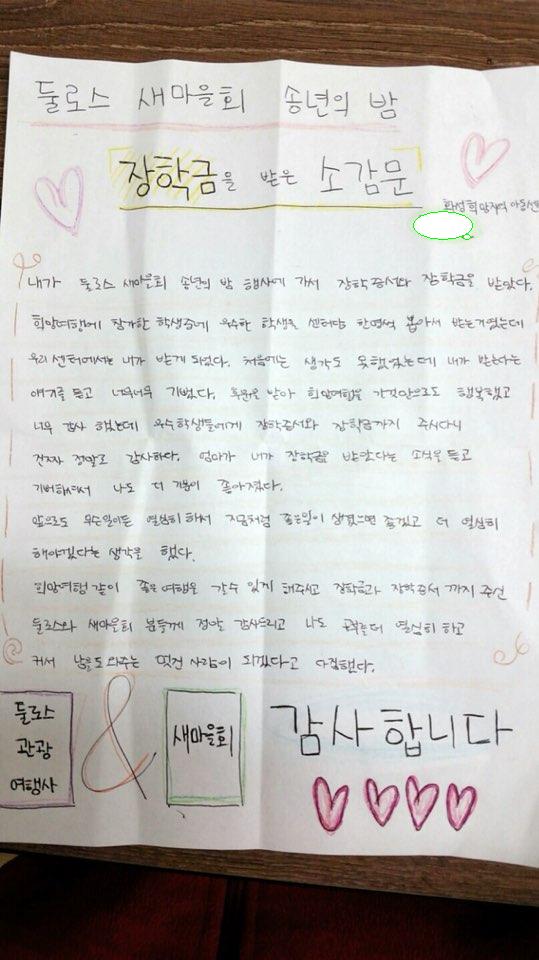 둘로스 새마을회 송년의 밤
장학금을 받은 소감문
화성희망지역 아동센터
내가 둘로스 새마을회 송년의 밤 행사에 가서 장학증서와 장학금을 받았다.
희망여행에 참가한 학생중에 우수한 학생을 센터당 한명씩 뽑아서 받는거였는데
우리 센터에서는 내가 받게 되었다. 처음에는 생각도 못했었는데 내가 받는다는
얘기를 듣고 너무너무 기뻤다. 후원을 받아 희망여행을 간것만으로도 행복했고
너무 감사 했는데 우수학생들에게 장학증서와 장학금까지 주시다니
정말로 감사하다. 엄마가 내가 장학금을 받았다는 소식을 듣고
기뻐하셔서 나도 더 기분이 좋아졌다.
앞으로도 무슨일이든 열심히 해서 지금처럼 좋은일이 생겼으면 좋겠고 더 열심히
해야겠다는 생각을 했다.
희망여행 같이 좋은 여행을 갈수 있게 해주시고 장학금과 장학증서 까지 주신
둘로스와 새마을회 분들께 정말 감사드리고 나도 열심히 하고
커서 남을 도와주는 멋진 사람이 되겠다고 다짐했다.
둘로스
관광
여행사
&
새마을회
감사합니다